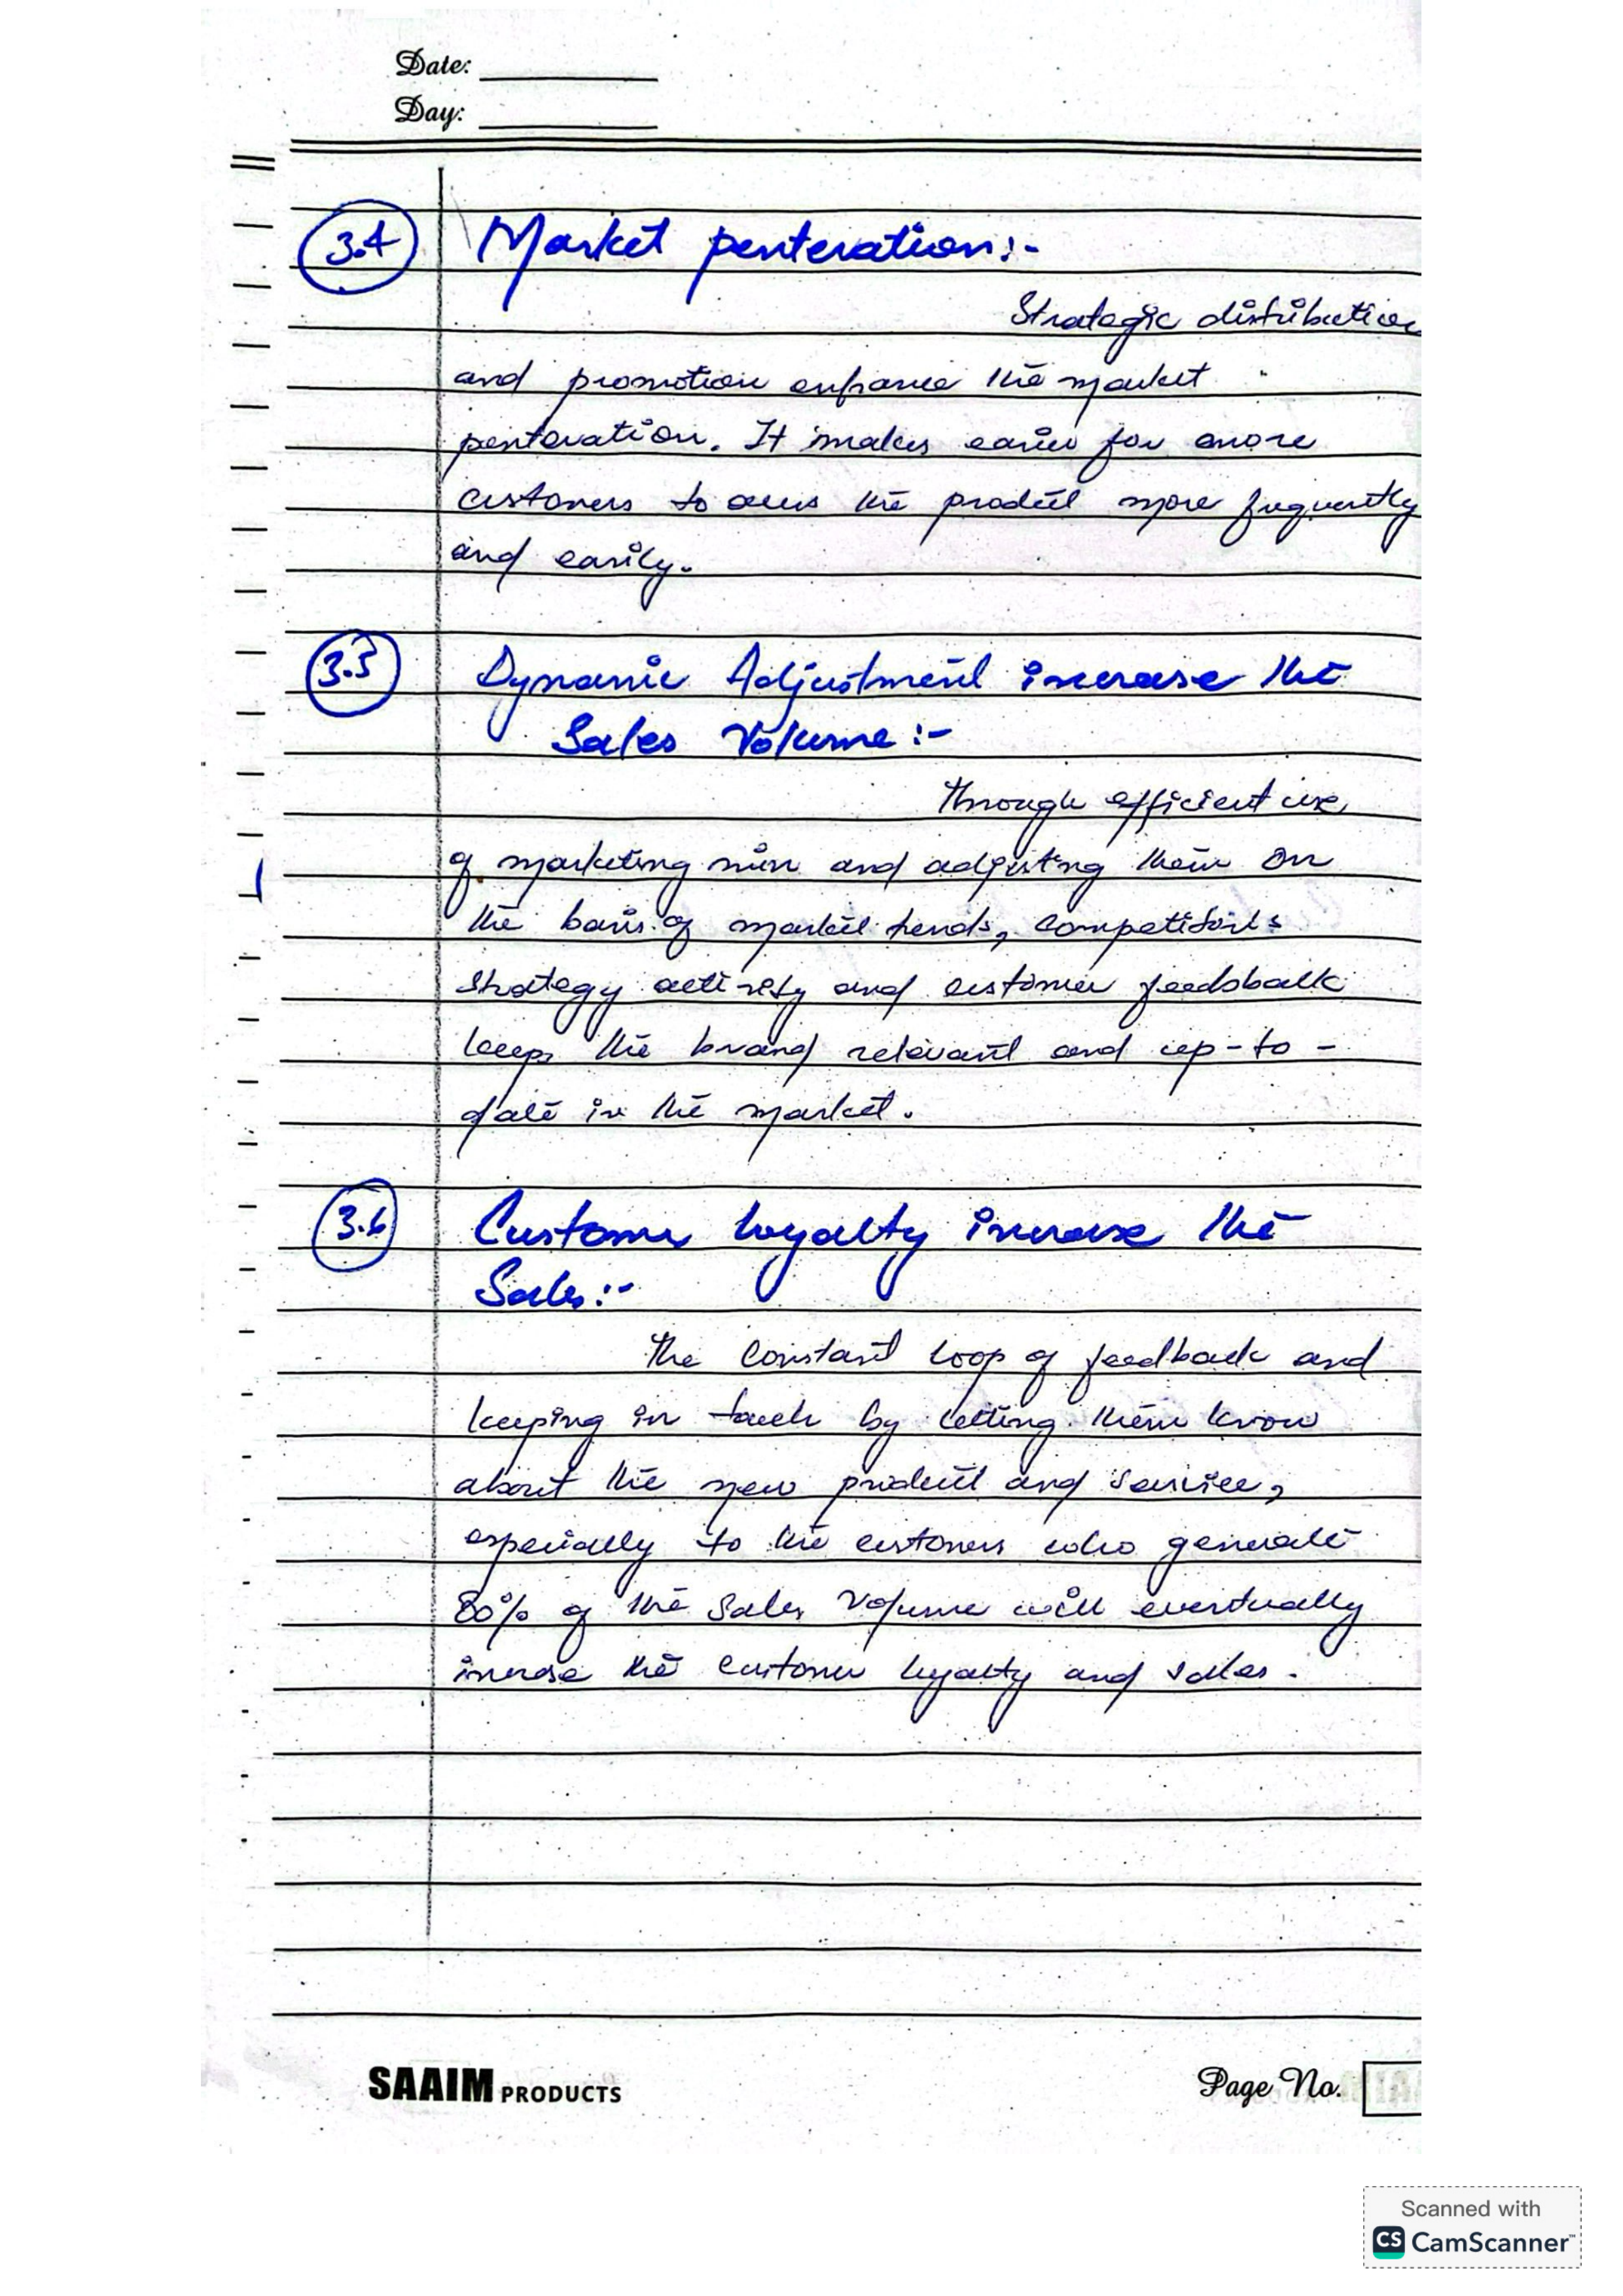 Date:
Day:
3.4 Market penteration:-
Strategic distribution
and promotion enhance the market
penteration. It makes easier for more
customers to access the product more frequently
and easily.
3.5 Dynamic Adjustment increase the
Sales Volume:-
Through efficient use
of marketing mix and adjusting them on
the basis of market trends, competitor's
strategy activity and customer feedsback
keeps the brand relevant and up-to-
date in the market.
3.6 Customer loyalty increase the
Sales:-
The constant loop of feedback and
keeping in touch by letting them know
about the new product and service,
especially to the customers who generate
80% of the sales volume will eventually
increase the customer loyalty and sales.
SAAIM PRODUCTS
Page No.
Scanned with
CS CamScanner